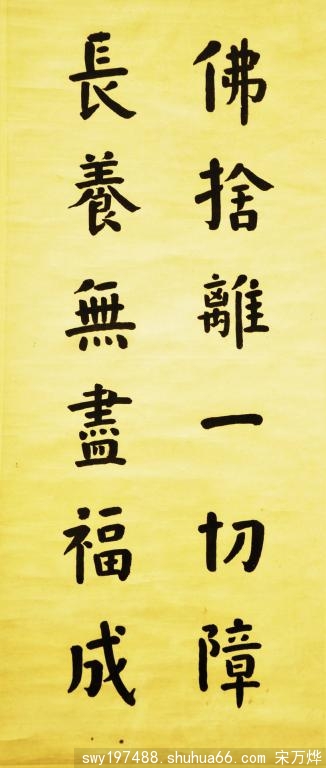 佛捨離一切障
長養無盡福成
swy197488.shuhua66.com 宋万烨